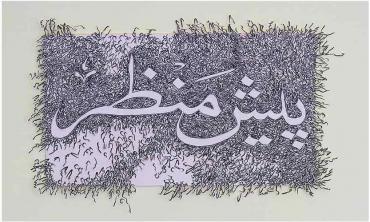 پیش منظر